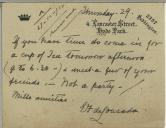 Thursday. 29.
4, Lancaster Street.
Hyde Park.
If you have time do come in for
a cup of Tea tomorrow afternoon
(4 to 6.30 -) & meet a few of your
friends - Not a party -
Mille amitiés